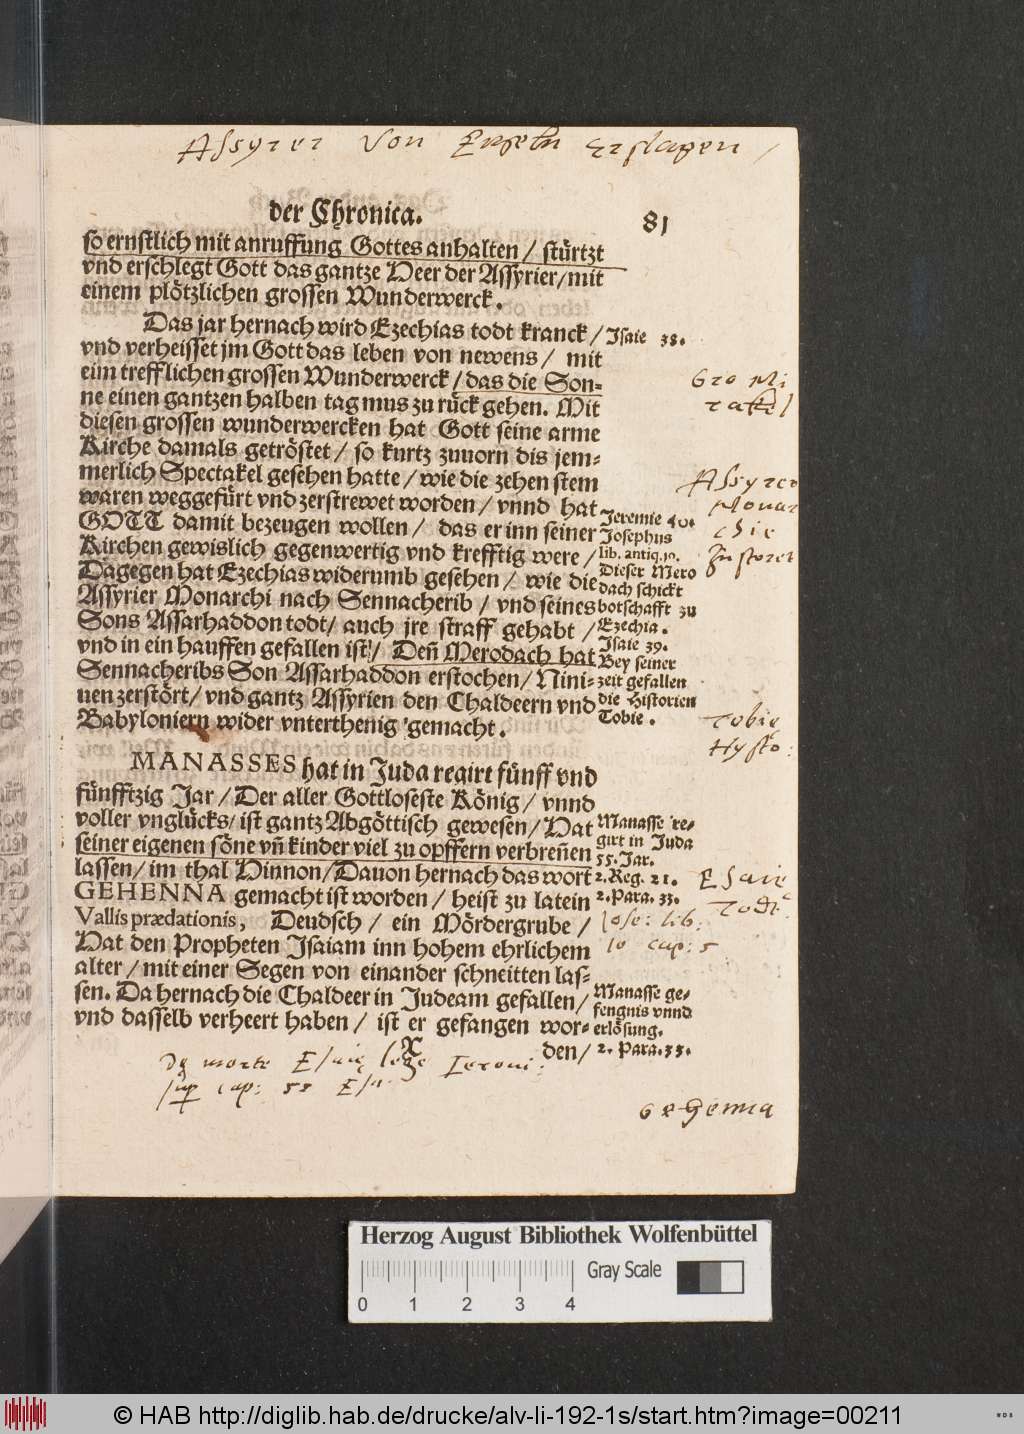 Assyrer Von Engeln Erslagen /
der Chronica. 81
so ernstlich mit anruffung Gottes anhalten / stürtzt
vnd erschlegt Gott das gantze Heer der Assyrier/mit
einem plötzlichen grossen Wunderwerck.
Das jar hernach wird Ezechias todt kranck /
Isaie 38.
vnd verheisset jm Gott das leben von newens / mit
eim trefflichen grossen Wunderwerck / das die Son=
ne einen gantzen halben tag mus zu rück gehen. Mit
Gro Mi
rakel
diesen grossen wunderwercken hat Gott seine arme
Kirche damals getröstet / so kurtz zuuorn dis jem=
merlich Spectakel gesehen hatte / wie die zehen stem
waren weggefürt vnd zerstrewet worden / vnnd hat
GOTT damit bezeugen wollen / das er inn seiner
Kirchen gewislich gegenwertig vnd krefftig were /
Dagegen hat Ezechias widerumb gesehen / wie die
Assyrier Monarchi nach Sennacherib / vnd seines
Sons Assarhaddon todt/ auch jre straff gehabt /
vnd in ein hauffen gefallen ist / Deñ Merodach hat
Sennacheribs Son Assarhaddon erstochen / Nini=
uen zerstört/ vnd gantz Assyrien den Chaldeern vnd
Babyloniern wider vnterthenig gemacht.
Jeremie 40.
Josephus
lib. antiq. 10.
Dieser Mero
dach schickt
botschafft zu
Ezechia.
Isaie 39.
Bey seiner
zeit gefallen
die Historien
Tobie.
Assyrer
Monar
chie
Zustoret
Tobie
Hysto:
MANASSES hat in Juda regirt fünff vnd
fünfftzig Jar / Der aller Gottloseste König / vnnd
voller vnglücks/ ist gantz Abgöttisch gewesen / Hat
seiner eigenen söne vñ kinder viel zu opffern verbreñen
lassen / im thal Hinnon/Dauon hernach das wort
GEHENNA gemacht ist worden / heist zu latein
Vallis prædationis, Deudsch / ein Mördergrube /
Hat den Propheten Isaiam inn hohem ehrlichem
alter / mit einer Segen von einander schneitten las=
sen. Da hernach die Chaldeer in Judeam gefallen /
vnd dasselb verheert haben / ist er gefangen wor=
den/
Manasse re=
girt in Juda
55. Jar.
2. Reg. 21.
2. Para. 33.
Jose: lib:
10 cap: 5
Esaie
Todt
Manasse ge=
fengnis vnnd
erlösung.
2. Para. 33.
X
De morte Esaię lege Ieroni:
sup cap: 55 Esa
Gehenna
Herzog August Bibliothek Wolfenbüttel
Gray Scale
0 1 2 3 4
© HAB http://diglib.hab.de/drucke/alv-li-192-1s/start.htm?image=00211